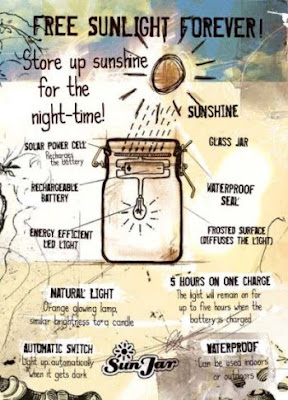 FREE SUNLIGHT FOREVER!
Store up sunshine
for the
night-time!
SUNSHINE
SOLAR POWER CELL
Recharges
the battery
GLASS JAR
RECHARGEABLE
BATTERY
WATERPROOF
SEAL
ENERGY EFFICIENT
LED LIGHT
FROSTED SURFACE
(DIFFUSES THE LIGHT)
NATURAL LIGHT
Orange glowing lamp,
similar brightness to a candle
5 HOURS ON ONE CHARGE
The light will remain on for
up to five hours when the
battery is charged
AUTOMATIC SWITCH
Light up automatically
when it gets dark
Sun Jar
WATERPROOF
Can be used indoors
or outdoors